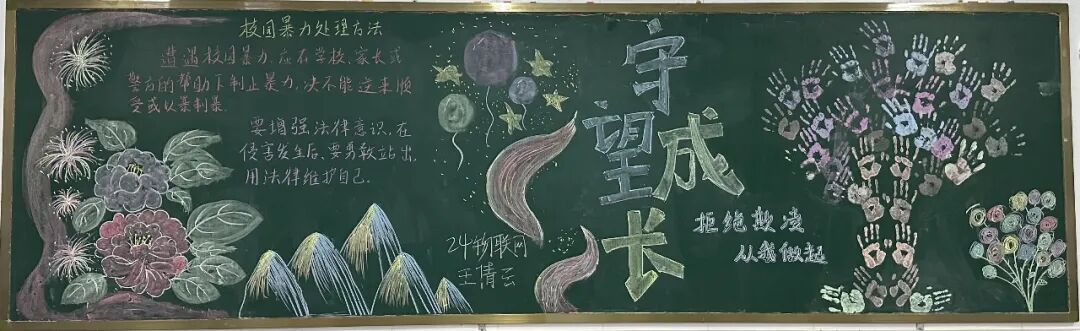 校园暴力处理方法
遭遇校园暴力,应在学校、家长或
警方的帮助下制止暴力,决不能逆来顺
受或以暴制暴.
要增强法律意识,在
侵害发生后,要勇敢站出,
用法律维护自己.
24物联网
王倩云
守望成长
拒绝欺凌
从我做起